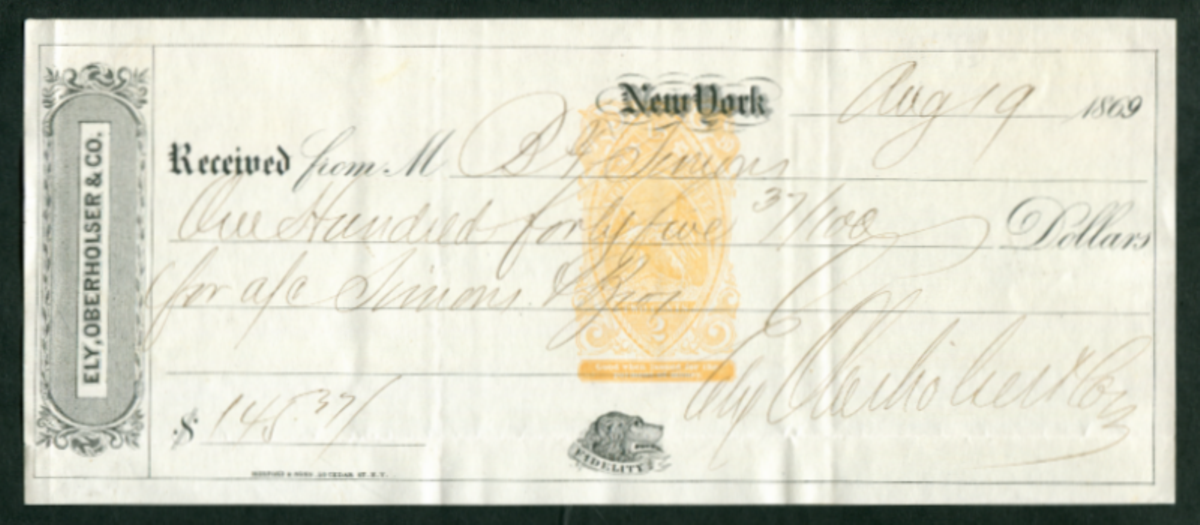 ELY, OBERHOLSER & CO.
New York Aug 19 1869
Received from M B F Simons
One Hundred forty five 37/100 Dollars
for a/c Simons & Bros
Ely Oberholser & Co
$ 145.37
FIDELITY